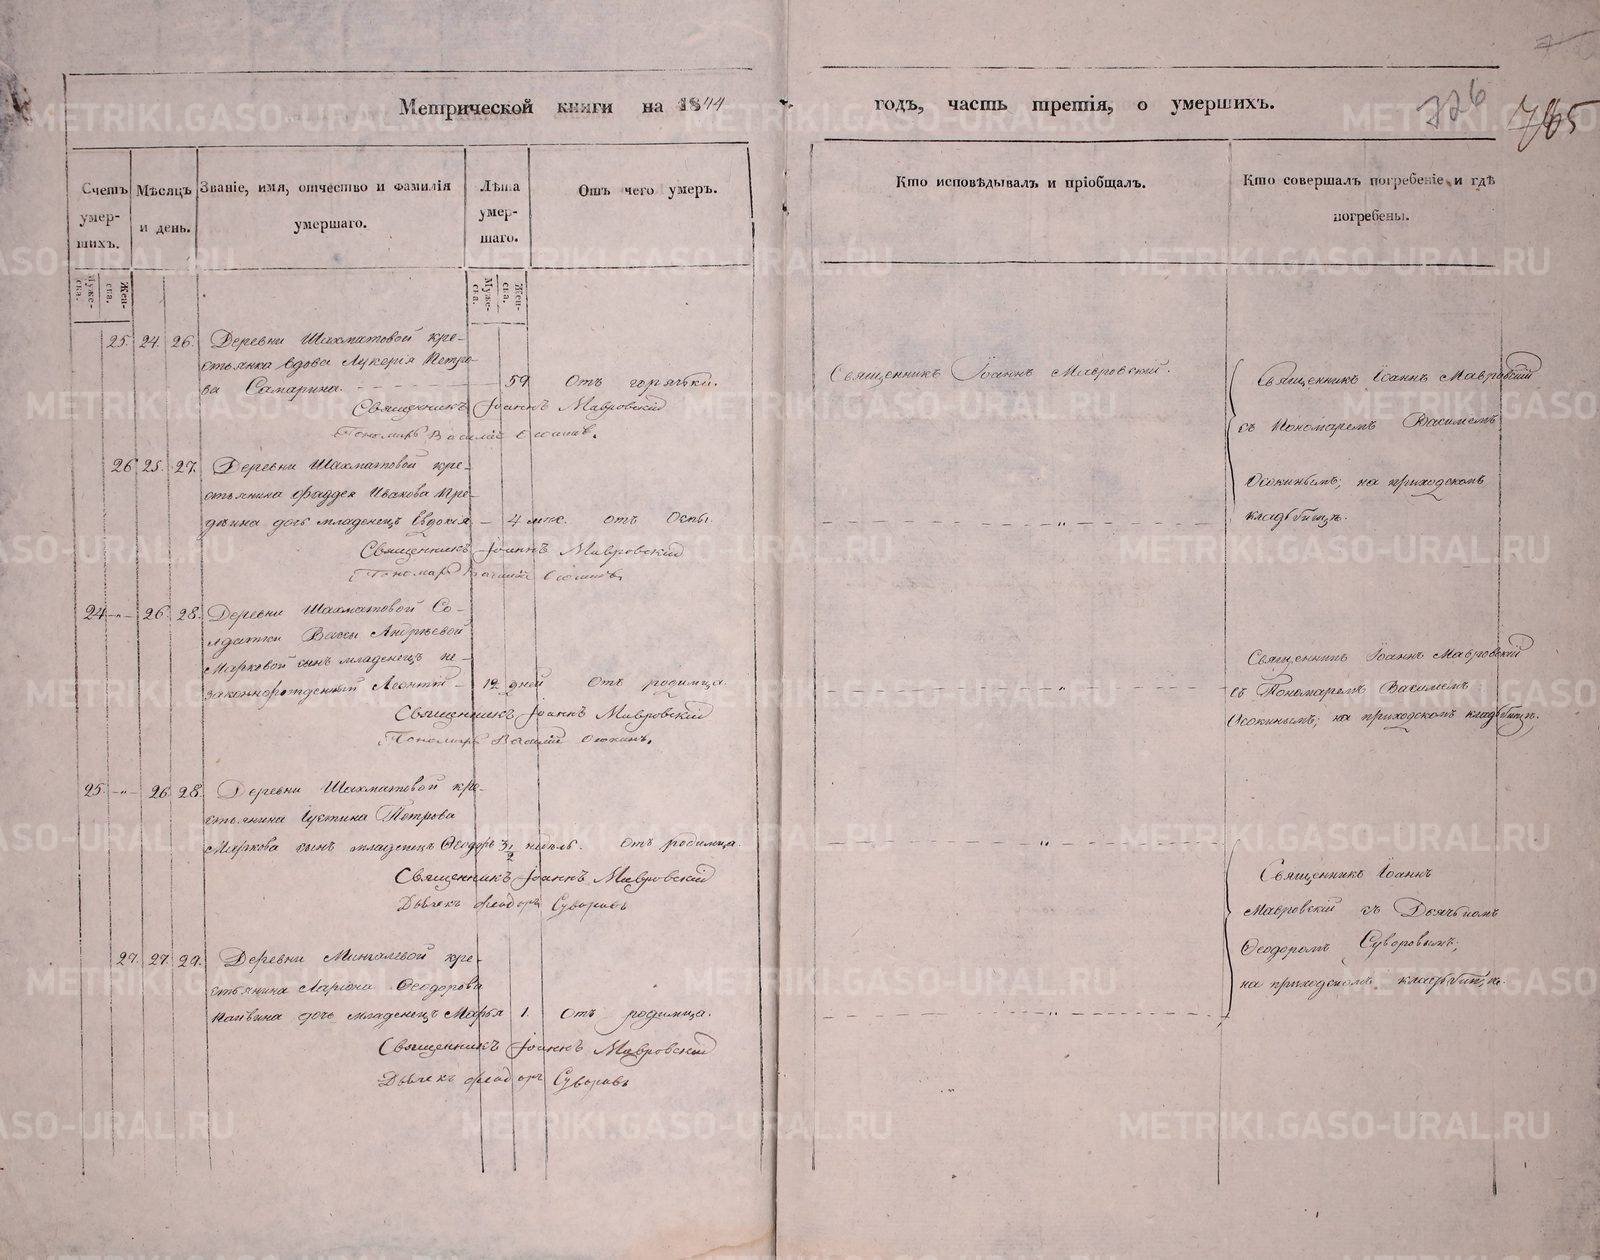 Метрической книги на 1844
годъ, часть третія, о умершихъ.
776
765
Счетъ умер-шихъ.
Мѣсяцъ и день.
Званіе, имя, отчество и фамилія умершаго.
Лѣта умер-шаго.
Отъ чего умеръ.
Кто исповѣдывалъ и пріобщалъ.
Кто совершалъ погребеніе и гдѣ погребены.
Муже-ска.
Жен-ска.
Муже-ска.
Жен-ска.
25. 24. 26. Деревни Шахматовой кре-
стьянка вдова Лукерія Петро-
ва Самарина. 59 Отъ горячьки.
Священникъ Іоаннъ Мавровскій
Пономарь Василій Осокинъ.
Священникъ Іоаннъ Мавровскій.
Священникъ Іоаннъ Мавровскій
съ Пономаремъ Василіемъ
Осокинымъ; на приходскомъ
кладбищѣ.
26 25. 27. Деревни Шахматовой кре-
стьянина Фаддея Ивакова
дочь младенецъ Евдокія 4 мѣс. отъ Оспы.
Священникъ Іоаннъ Мавровскій
Пономарь Василій Осокинъ.
24 26. 28. Деревни Шахматовой Со-
лдатки Вассы Андреевой
Марковой сынъ младенецъ не-
законнорожденный Леонтій 12 дней Отъ родимца.
Священникъ Іоаннъ Мавровскій
Пономарь Василій Осокинъ.
Священникъ Іоаннъ Мавровскій
съ Пономаремъ Василіемъ
Осокинымъ; на приходскомъ кладбищѣ.
25. 26 28. Деревни Шахматовой кре-
стьянина Іустина Петрова
Маркова сынъ младенецъ Ѳеодоръ 3 1/2 недѣль. Отъ родимца.
Священникъ Іоаннъ Мавровскій
Дьячекъ Ѳеодоръ Суворовъ
Священникъ Іоаннъ
Мавровскій съ Дьячькомъ
Ѳеодоромъ Суворовымъ;
на приходскомъ кладбищѣ.
27. 27. 29. Деревни Мингалевой кре-
стьянина Ларіона Ѳеодорова
дочь младенецъ Марья 1. Отъ родимца.
Священникъ Іоаннъ Мавровскій
Дьячекъ Ѳеодоръ Суворовъ
METRIKI.GASO-URAL.RU